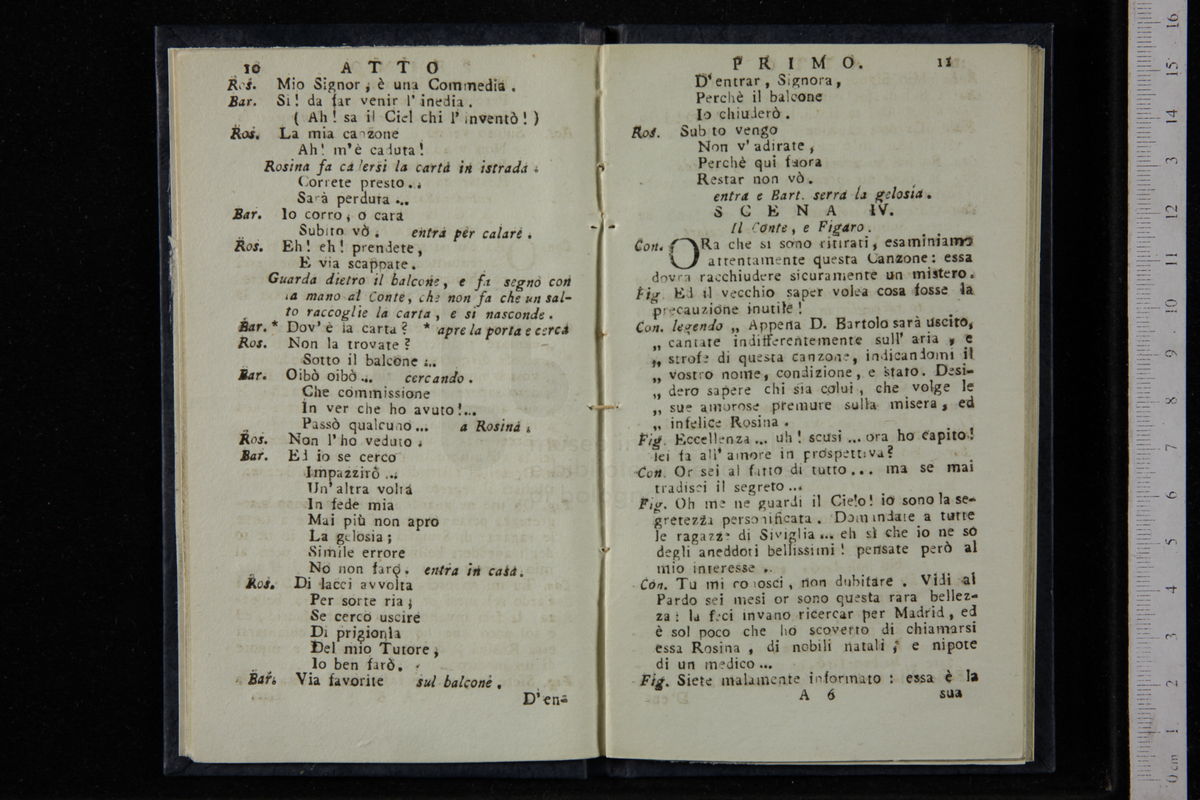 10 ATTO
Ros. Mio Signor, è una Commedia.
Bar. Si! da far venir l' inedia.
( Ah! sa il Ciel chi l' inventò! )
Ros. La mia canzone
Ah! m'è caduta!
Rosina fa calersi la carta in istrada.
Correte presto..
Sarà perduta ...
Bar. Io corro, o cara
Subito vò. entra per calare.
Ros. Eh! eh! prendete,
E via scappate.
Guarda dietro il balcone, e fa segno con
la mano al Conte, che non fa che un sal-
to raccoglie la carta, e si nasconde.
Bar. * Dov' è la carta? * apre la porta e cerca
Ros. Non la trovate?
Sotto il balcone ...
Bar. Oibò oibò... cercando.
Che commissione
In ver che ho avuto!...
Passò qualcuno... a Rosina.
Ros. Non l' ho veduto.
Bar. Ed io se cerco
Impazzirò ...
Un' altra volta
In fede mia
Mai più non apro
La gelosia;
Simile errore
No non farò. entra in casa.
Ros. Di lacci avvolta
Per sorte ria;
Se cerco uscire
Di prigionia
Del mio Tutore,
Io ben farò.
Bar. Via favorite sul balcone.
D' en-
PRIMO. 11
D' entrar, Signora,
Perchè il balcone
Io chiuderò.
Ros. Subito vengo
Non v' adirate,
Perchè qui fuora
Restar non vò.
entra e Bart. serra la gelosia.
SCENA IV.
Il Conte, e Figaro.
Con. ORa che si sono ritirati, esaminiamo
attentamente questa Canzone: essa
dovrà racchiudere sicuramente un mistero.
Fig. Ed il vecchio saper volea cosa fosse la
precauzione inutile!
Con. legendo „ Appena D. Bartolo sarà uscito,
„ cantate indifferentemente sull' aria, e
„ strofe di questa canzone, indicandomi il
„ vostro nome, condizione, e stato. Desi-
„ dero sapere chi sia colui, che volge le
„ sue amorose premure sulla misera, ed
„ infelice Rosina.
Fig. Eccellenza ... uh! scusi ... ora ho capito!
lei fa all' amore in prospettiva?
Con. Or sei al fatto di tutto... ma se mai
tradisci il segreto ...
Fig. Oh me ne guardi il Cielo! io sono la se-
gretezza personificata. Domandate a tutte
le ragazze di Siviglia ... eh sì che io ne so
degli aneddoti bellissimi! pensate però al
mio interesse ..
Con. Tu mi conosci, non dubitare. Vidi al
Pardo sei mesi or sono questa rara bellez-
za: la feci invano ricercar per Madrid, ed
è sol poco che ho scoverto di chiamarsi
essa Rosina, di nobili natali, e nipote
di un medico ...
Fig. Siete malamente informato: essa è la
A 6 sua